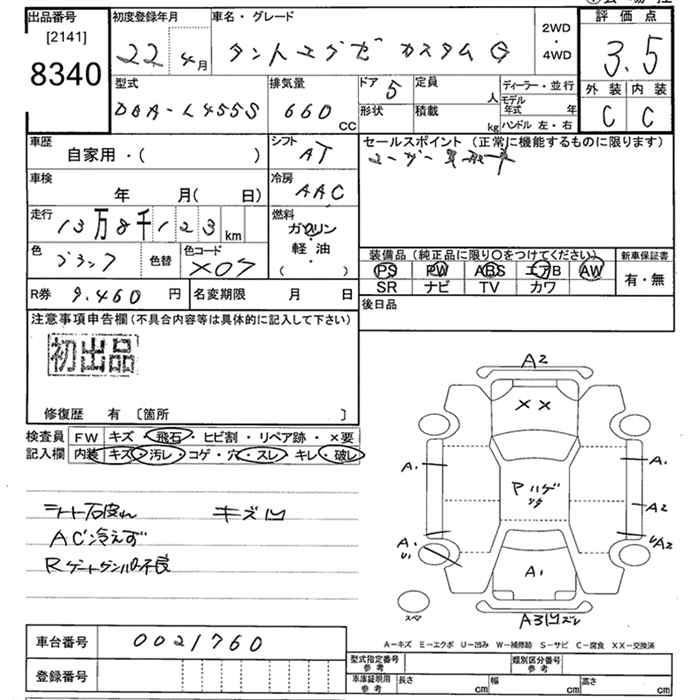 出品番号
[2141]
8340
初度登録年月
22年4月
車名・グレード
タントエグゼ カスタムG
2WD
4WD
評価点
3.5
外装 内装
C C
型式
DBA-L455S
排気量
660 CC
ドア 5
形状
定員 人
積載 kg
ディーラー・並行
モデル年式 年
ハンドル 左・右
車歴
自家用・( )
シフト
AT
車検
年 月( 日)
冷房
AAC
走行
13万8千123 km
燃料
ガソリン
軽油
( )
色
ブラック
色替
色コード
X07
R券 9,460 円
名変期限 月 日
セールスポイント (正常に機能するものに限ります)
装備品 (純正品に限り○をつけてください)
PS PW ABS エアB AW
SR ナビ TV カワ
新車保証書
有・無
後日品
注意事項申告欄(不具合内容等は具体的に記入して下さい)
初出品
修復歴 有 [箇所 ]
検査員記入欄
FW キズ・飛石・ヒビ割・リペア跡・×要
内装 キズ・汚レ・コゲ・穴・スレ・キレ・破レ
キズ凹
AC冷えず
不良
A2
××
A1
A1
A2
A1
U1
A2
A1
スペア
A-キズ E-エクボ U-凹み W-補修跡 S-サビ C-腐食 XX-交換済
車台番号 0021760
登録番号
型式指定番号 参考
類別区分番号 参考
車庫証明用 参考
長さ cm
幅 cm
高さ cm